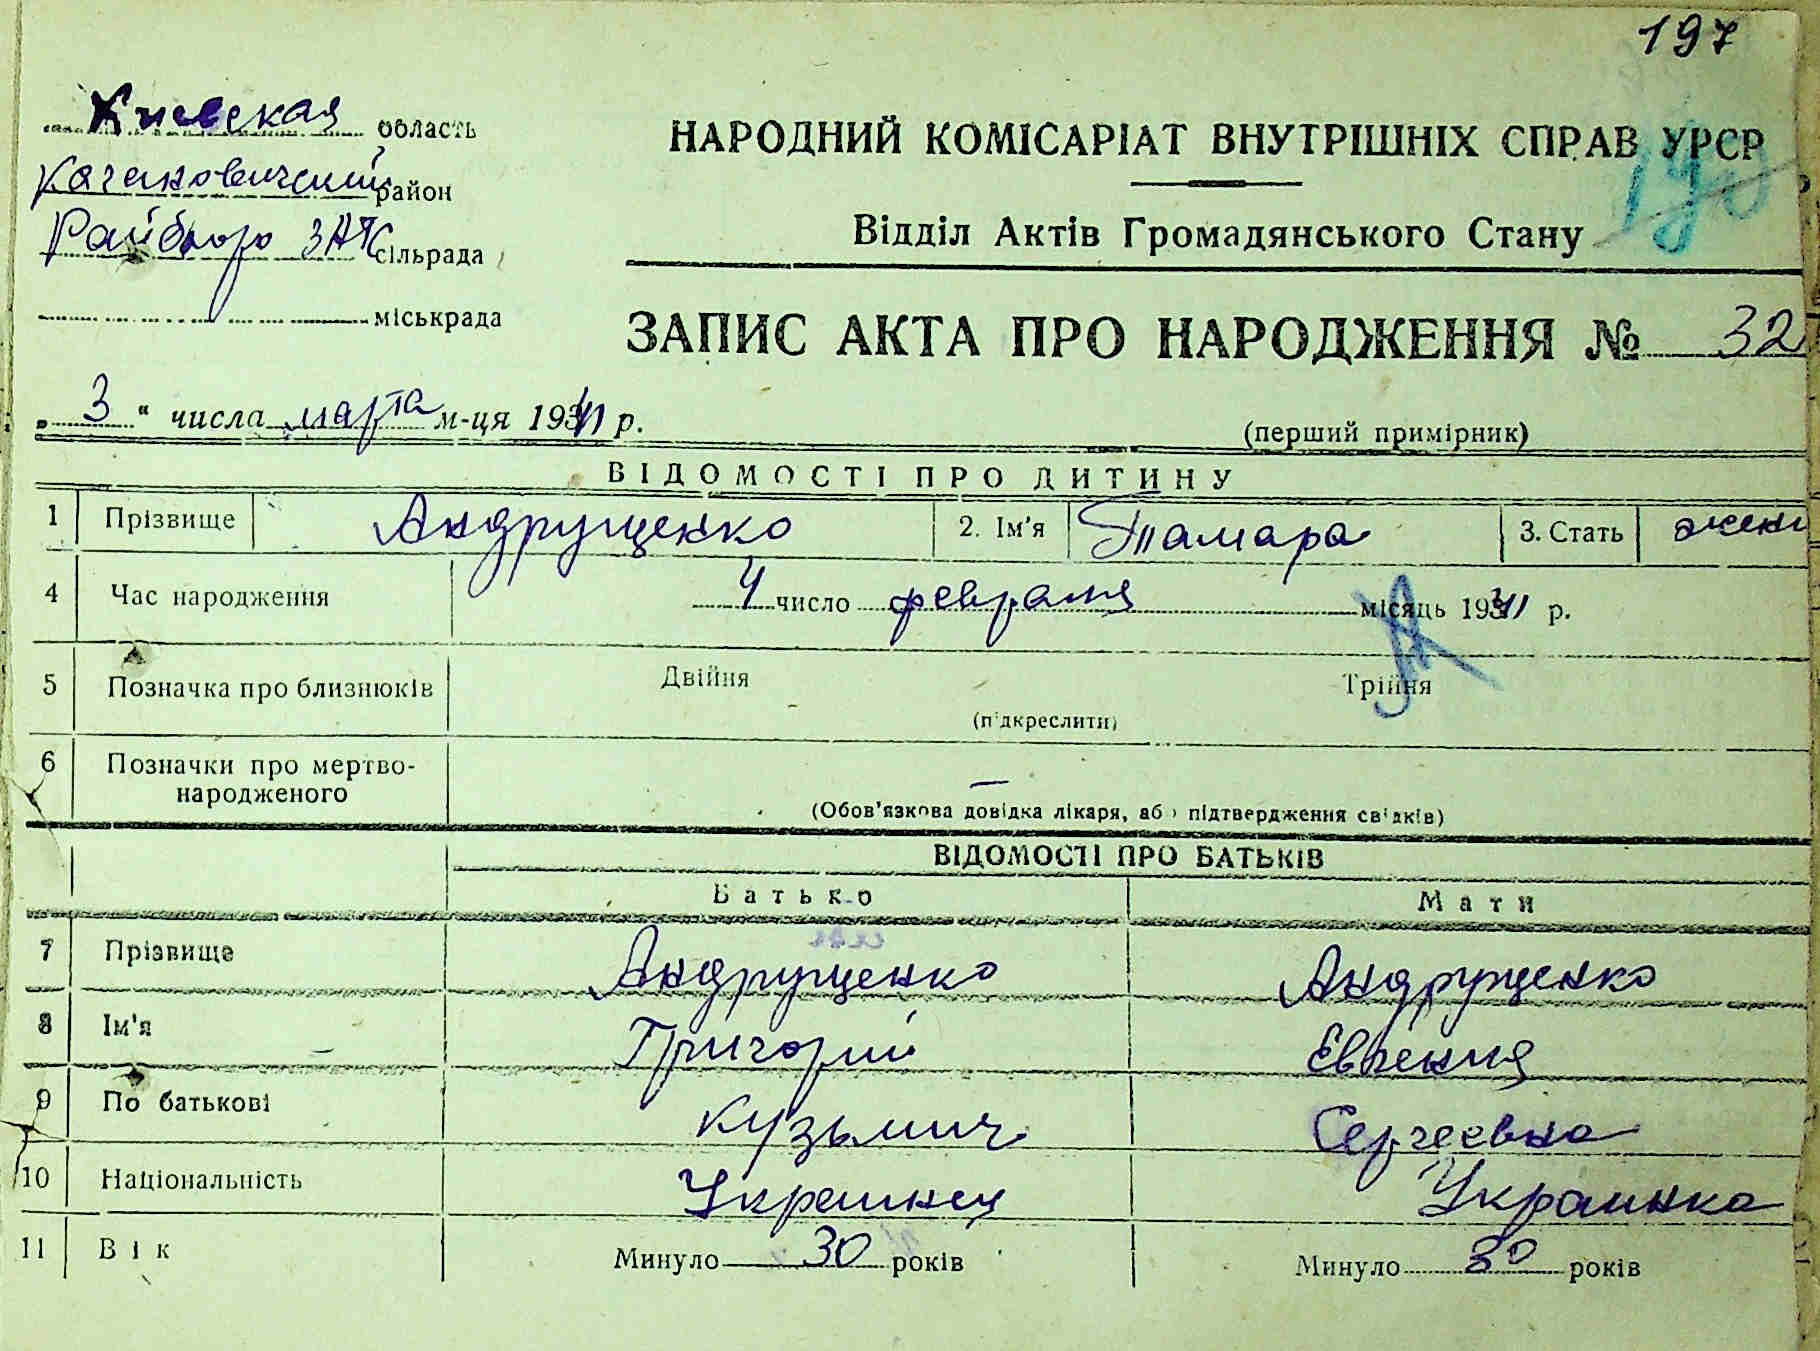 197
Киевская область
Кагановический район
Райбюро ЗАГС сільрада
міськрада
НАРОДНИЙ КОМІСАРІАТ ВНУТРІШНІХ СПРАВ УРСР
Відділ Актів Громадянського Стану
ЗАПИС АКТА ПРО НАРОДЖЕННЯ № 32
„ 3 “ числа марта м-ця 1941 р.
(перший примірник)
ВІДОМОСТІ ПРО ДИТИНУ
1 Прізвище Андрущенко 2. Ім'я Тамара 3. Стать женс
4 Час народження 4 число февраля місяць 1941 р.
5 Позначка про близнюків Двійня Трійня
(підкреслити)
6 Позначки про мертво-
народженого —
(Обов'язкова довідка лікаря, або підтвердження свідків)
ВІДОМОСТІ ПРО БАТЬКІВ
Батько Мати
7 Прізвище Андрущенко Андрущенко
8 Ім'я Григорий Евгения
9 По батькові Кузьмич Сергеевна
10 Національність Украинец Украинка
11 Вік Минуло 30 років Минуло 30 років